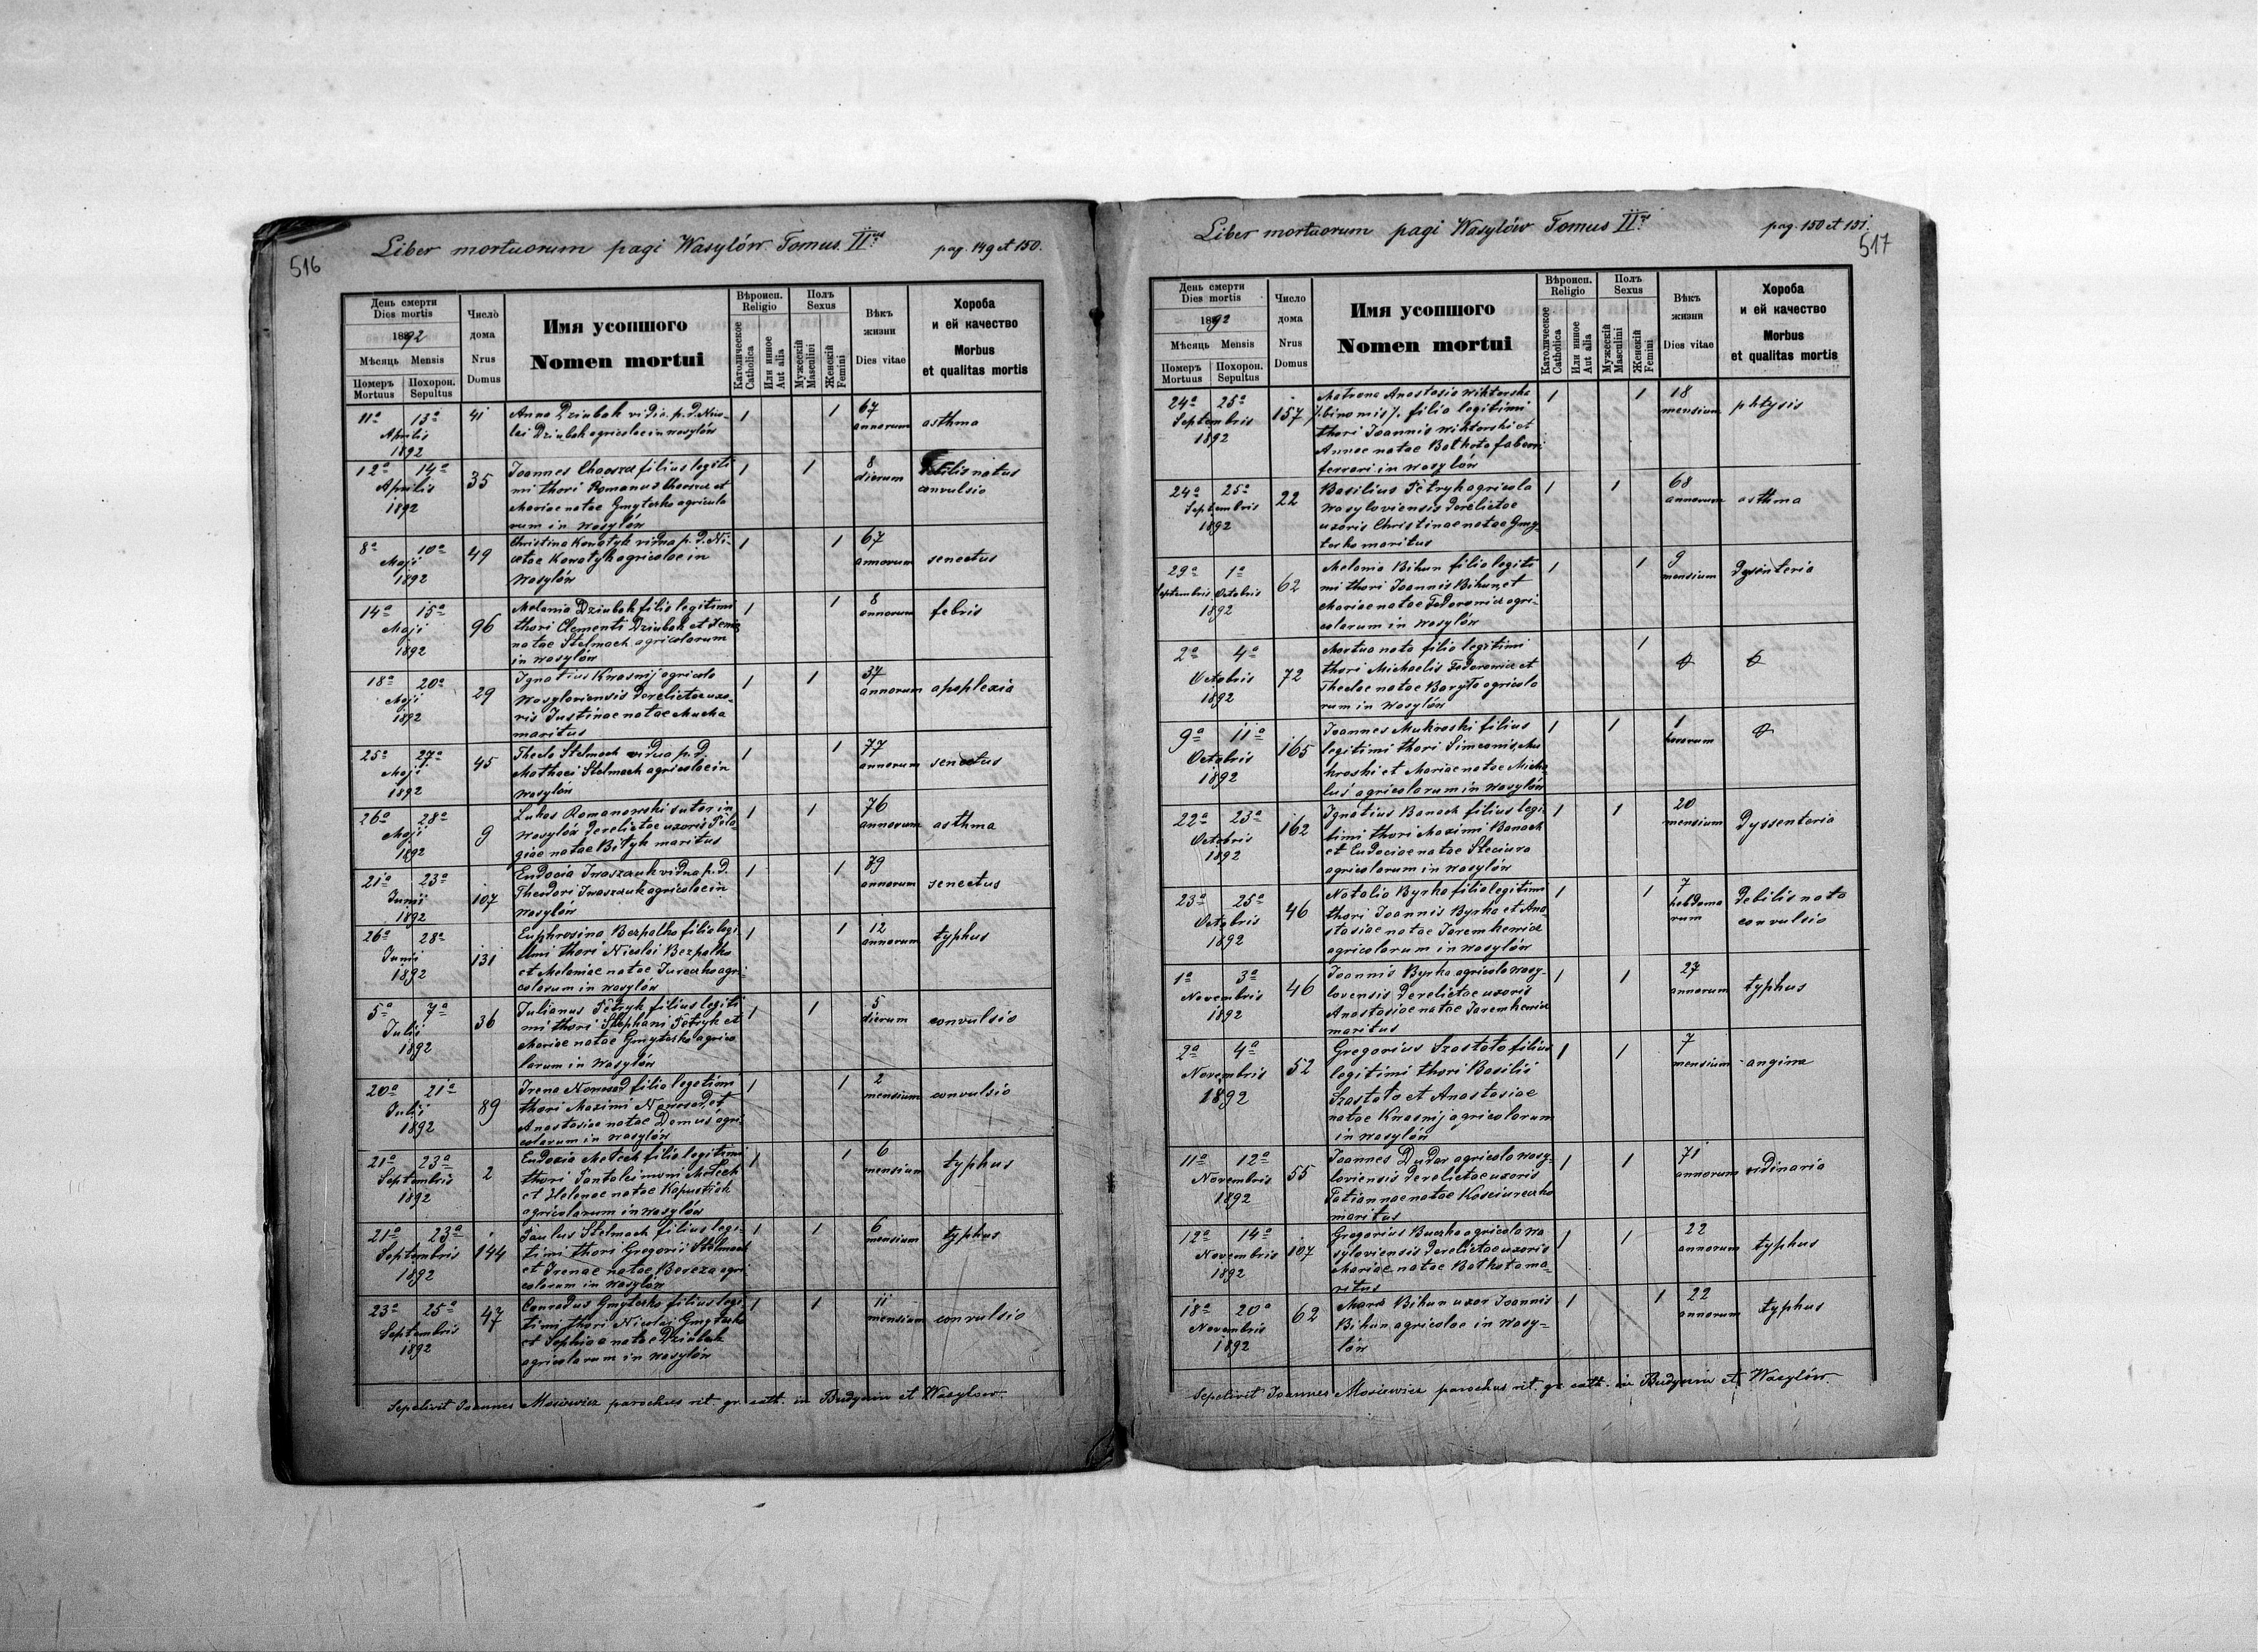 516
Liber mortuorum pagi Wasylów Tomus IIus pag. 149 et 150.
День смерти
Dies mortis
1892
Мѣсяць Mensis
Померъ Похорон.
Mortuus Sepultus
Число
дома
Nrus
Domus
Имя усопшого
Nomen mortui
Вѣроисп.
Religio
Католическое
Catholica
Или инное
Aut alia
Полъ
Sexus
Мужескій
Masculini
Женскій
Femini
Вѣкъ
жизни
Dies vitae
Хороба
и ей качество
Morbus
et qualitas mortis
11a 13a Aprilis 1892 41
Anna Dziubak vidua p. d. Nico-
lai Dziubak agricolae in Wasylów
1 1 67 annorum asthma
12a 14a Aprilis 1892 35
Joannes filius legiti
mi thori Romanus et
Mariae natae Gmyterko agricola
rum in Wasylów
1 1 8 dierum debilis natus
convulsio
8a 10a Maji 1892 49
Christina Kowatyk vidua p. d. Ni-
cetae Kowatyk agricolae in
Wasylów
1 1 67 annorum senectus
14a 15a Maji 1892 96
Melania Dziubak filia legitimi
thori Clementi Dziubak et
natae Stelmach agricolarum
in Wasylów
1 1 8 annorum febris
18a 20a Maji 1892 29
Ignatius Kwasnij agricola
Wasyloviensis derelictae uxo-
ris Justinae natae Mucha
maritus
1 1 37 annorum apoplexia
25a 27a Maji 1892 45
Thecla Stelmach vidua p. d.
Mathaei Stelmach agricolae in
Wasylów
1 1 77 annorum senectus
26a 28a Maji 1892 9
Lukas Romanowski sutor in
Wasylów derelictae uxoris Pela-
giae natae Bityk maritus
1 1 76 annorum asthma
21a 23a Junii 1892 107
Eudocia Iwaszczuk vidua p. d.
Theodori Iwaszczuk agricolae in
Wasylów
1 1 79 annorum senectus
26a 28a Junii 1892 131
Euphrosina Bezpalko filia legi
timi thori Nicolai Bezpalko
et Melaniae natae Jureczko agri
colarum in Wasylów
1 1 12 annorum typhus
5a 7a Julii 1892 36
Julianus Petryk filius legiti
mi thori Stephani Petryk et
Mariae natae Gmyterko agrico
larum in Wasylów
1 1 5 dierum convulsio
20a 21a Julii 1892 89
Irena Nowosad filia legitimi
thori Maximi Nowosad et
Anastasiae natae Demus agri
colarum in Wasylów
1 1 2 mensium convulsio
21a 23a Septembris 1892 2
Eudoxia filia legitimi
thori Pantaleimoni
et Helenae natae Kapustiak
agricolarum in Wasylów
1 1 6 mensium typhus
21a 23a Septembris 1892 144
Paulus Stelmach filius legi-
timi thori Gregorii Stelmach
et Irenae natae Bereza agri
colarum in Wasylów
1 1 6 mensium typhus
23a 25a Septembris 1892 47
Conradus Gmyterko filius legi
timi thori Nicolai Gmyterko
et Sophiae natae Dziubak
agricolarum in Wasylów
1 1 11 mensium convulsio
Sepelivit Joannes Mosiewicz parochus rit. gr. cath. in Budynin et Wasylow
517
Liber mortuorum pagi Wasylów Tomus IIus pag. 150 et 151.
День смерти
Dies mortis
1892
Мѣсяць Mensis
Померъ Похорон.
Mortuus Sepultus
Число
дома
Nrus
Domus
Имя усопшого
Nomen mortui
Вѣроисп.
Religio
Католическое
Catholica
Или инное
Aut alia
Полъ
Sexus
Мужескій
Masculini
Женскій
Femini
Вѣкъ
жизни
Dies vitae
Хороба
и ей качество
Morbus
et qualitas mortis
24a 25a Septembris 1892 157
Matrona Anastasia Wiktorska
/:binomis/: filia legitimi
thori Joannis Wiktorski et
Annae natae Bathota fabri
ferrari in Wasylów
1 1 18 mensium phtysis
24a 25a Septembris 1892 22
Basilius Petryk agricola
Wasyloviensis derelictae
uxoris Christinae natae Gmy-
terko maritus
1 1 68 annorum asthma
29a Septembris 1a Octobris 1892 62
Melania Bihun filia legiti
mi thori Joannis Bihun et
Mariae natae Fedorowicz agri-
colarum in Wasylów
1 1 9 mensium dysenteria
2a 4a Octobris 1892 72
Mortua nata filia legitimi
thori Michaelis Fedorowicz et
Theclae natae Baryta agricola
rum in Wasylów
1
9a 11a Octobris 1892 165
Joannes Mukroski filius
legitimi thori Simeonis Mu
kroski et Mariae natae Micha-
lus agricolarum in Wasylów
1 1 1 horarum
22a 23a Octobris 1892 162
Ignatius Banach filius legi-
timi thori Maximi Banach
et Eudociae natae Steciura
agricolarum in Wasylów
1 1 20 mensium dyssenteria
23a 25a Octobris 1892 46
Natalia Byrka filia legitimi
thori Joannis Byrka et Ana-
stasiae natae Jaremkewicz
agricolarum in Wasylów
1 1 7 hebdoma
rum debilis nata
convulsio
1a 3a Novembris 1892 46
Joannis Byrka agricola Wasy-
loviensis derelictae uxoris
Anastasiae natae Jaremkewicz
maritus
1 1 27 annorum typhus
2a 4a Novembris 1892 52
Gregorius Szostato filius
legitimi thori Basilii
Szostato et Anastasiae
natae Kwasnij agricolarum
in Wasylów
1 1 7 mensium angina
11a 12a Novembris 1892 55
Joannes Dudar agricola Wasy-
loviensis derelictae uxoris
Tatiannae natae Kosciureczko
maritus
1 1 71 annorum ordinaria
12a 14a Novembris 1892 107
Gregorius Buczko agricola Wa
syloviensis derelictae uxoris
Mariae natae Bathota ma-
ritus
1 1 22 annorum typhus
18a 20a Novembris 1892 62
Maria Bihun uxor Joannis
Bihun agricolae in Wasy-
lów
1 1 22 annorum typhus
Sepelivit Joannes Mosiewicz parochus rit. gr. cath. in Budynin et Wasylów